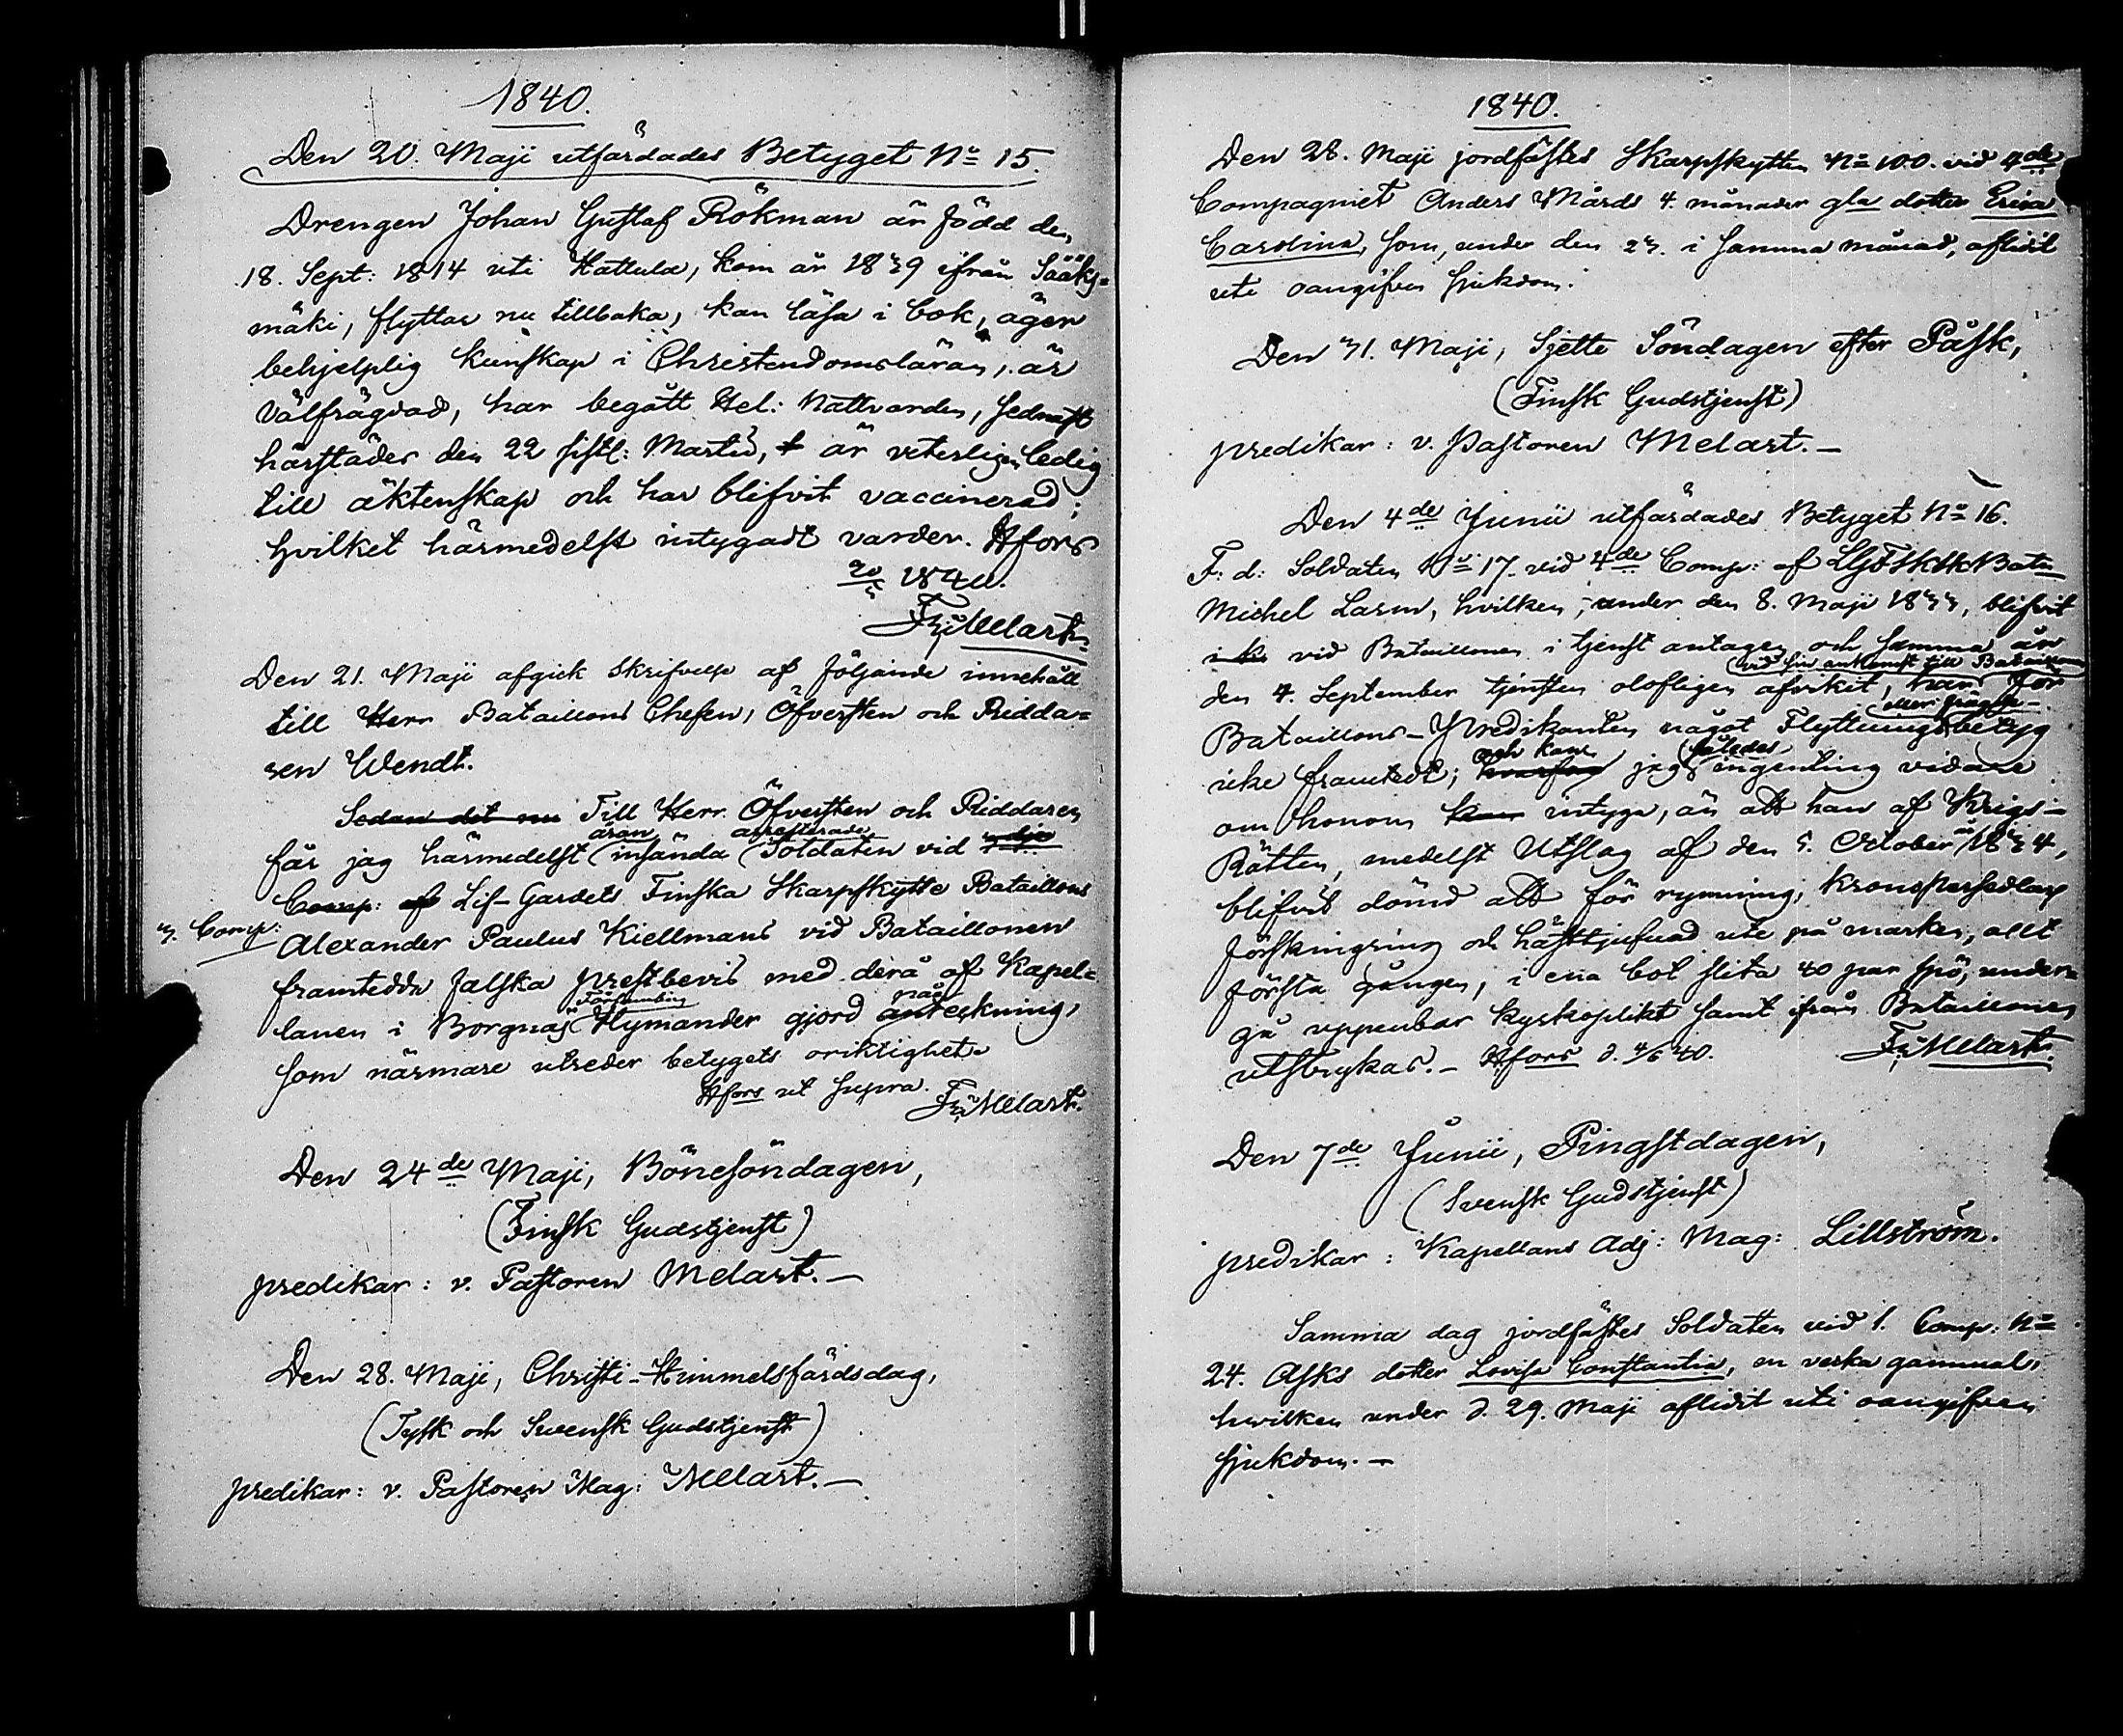 1840.
Den 20. Maji utfärdades Betyget No 15.
Drengen Johan Gustaf Rökman är född den
18. Sept: 1814 uti Hattula, kom år 1839 ifrån Sääks-
mäki, flyttar nu tillbaka, kan läsa i bok, äger
behjelplig kunskap i Christendomsläran, är
välfrägdad, har begått Hel: Nattvarden, sednast
härstädes den 22 sistl: Martii, är veterligen ledig
till äktenskap och har blifvit vaccinerad;
hvilket härmedelst intygadt varder. Hfors
20/5 1840.
Melart.
Den 21. Maji afgick skrifvelse af följande innehåll
till Herr Bataillons Chefen, Öfversten och Ridda-
ren Wendt.
Sedan det nu Till Herr Öfversten och Riddaren
äran arresterade
får jag härmedelst insända Soldaten vid 3 die
Comp: af Lif-Gardets Finska Skarpskytte Bataillons
3. Comp:
Alexander Paulus Kiellmans vid Bataillonen
framtedda falska prestbevis med derå af Kapel-
Församling på
lanen i Borgnäs Hymander gjord anteckning,
som närmare utreder betygets oriktighet.
Hfors ut supra. Melart.
Den 24de Maji, Bönesöndagen,
(Finsk Gudstjenst)
predikar: v. Pastoren Melart.—
Den 28. Maji, Christi-Himmelsfärdsdag,
(Tysk och Svensk Gudstjenst)
predikar: v. Pastoren Mag: Melart.—
1840.
Den 28. Maji jordfästes Skarpskytten No 100. vid 4de
Compagniet Anders Mårds 4. månader gla dotter Erica
Carolina, som, under den 23. i samma månad, aflidit
uti oangifven sjukdom.
Den 31. Maji, Sjette Söndagen efter Påsk,
(Finsk Gudstjenst)
predikar: v. Pastoren Melart.—
Den 4de Junii utfärdades Betyget No 16.
F: d: Soldaten No 17. vid 4de Comp: af LGFSkSkBatn
Michel Larm, hvilken, under den 8. Maji 1833, blifvit
vid Bataillonen i tjenst antagen och samma år
vid sin ankomst till Bataillonen
den 4. September tjensten olofligen afvikit, har för
eller frägde-
Bataillons-Predikanten något Flyttningsbetyg
och kan således
icke framtedt; hvarför jag ingenting vidare
om honom kan intyga, än att han af Krigs-
Rätten, medelst Utslag af den 5. October år 1834,
blifvit dömd att för rymning, Kronopersedlars
förskingring och häststjufnad ute på marken, allt
första gången, i ena bot slita 40 par spö, under-
gå uppenbar kyrkoplikt samt ifrån Bataillonen
utstrykas.— Hfors d. 4/6 40. Melart.
Den 7de Junii, Pingstdagen,
(Svensk Gudstjenst)
predikar: Kapellans Adj: Mag: Lillström.
Samma dag jordfästes Soldaten vid 1. Comp: No
24. Asks dotter Lovisa Constantia, en vecka gammal,
hvilken under d. 29. Maji aflidit uti oangifven
sjukdom.—